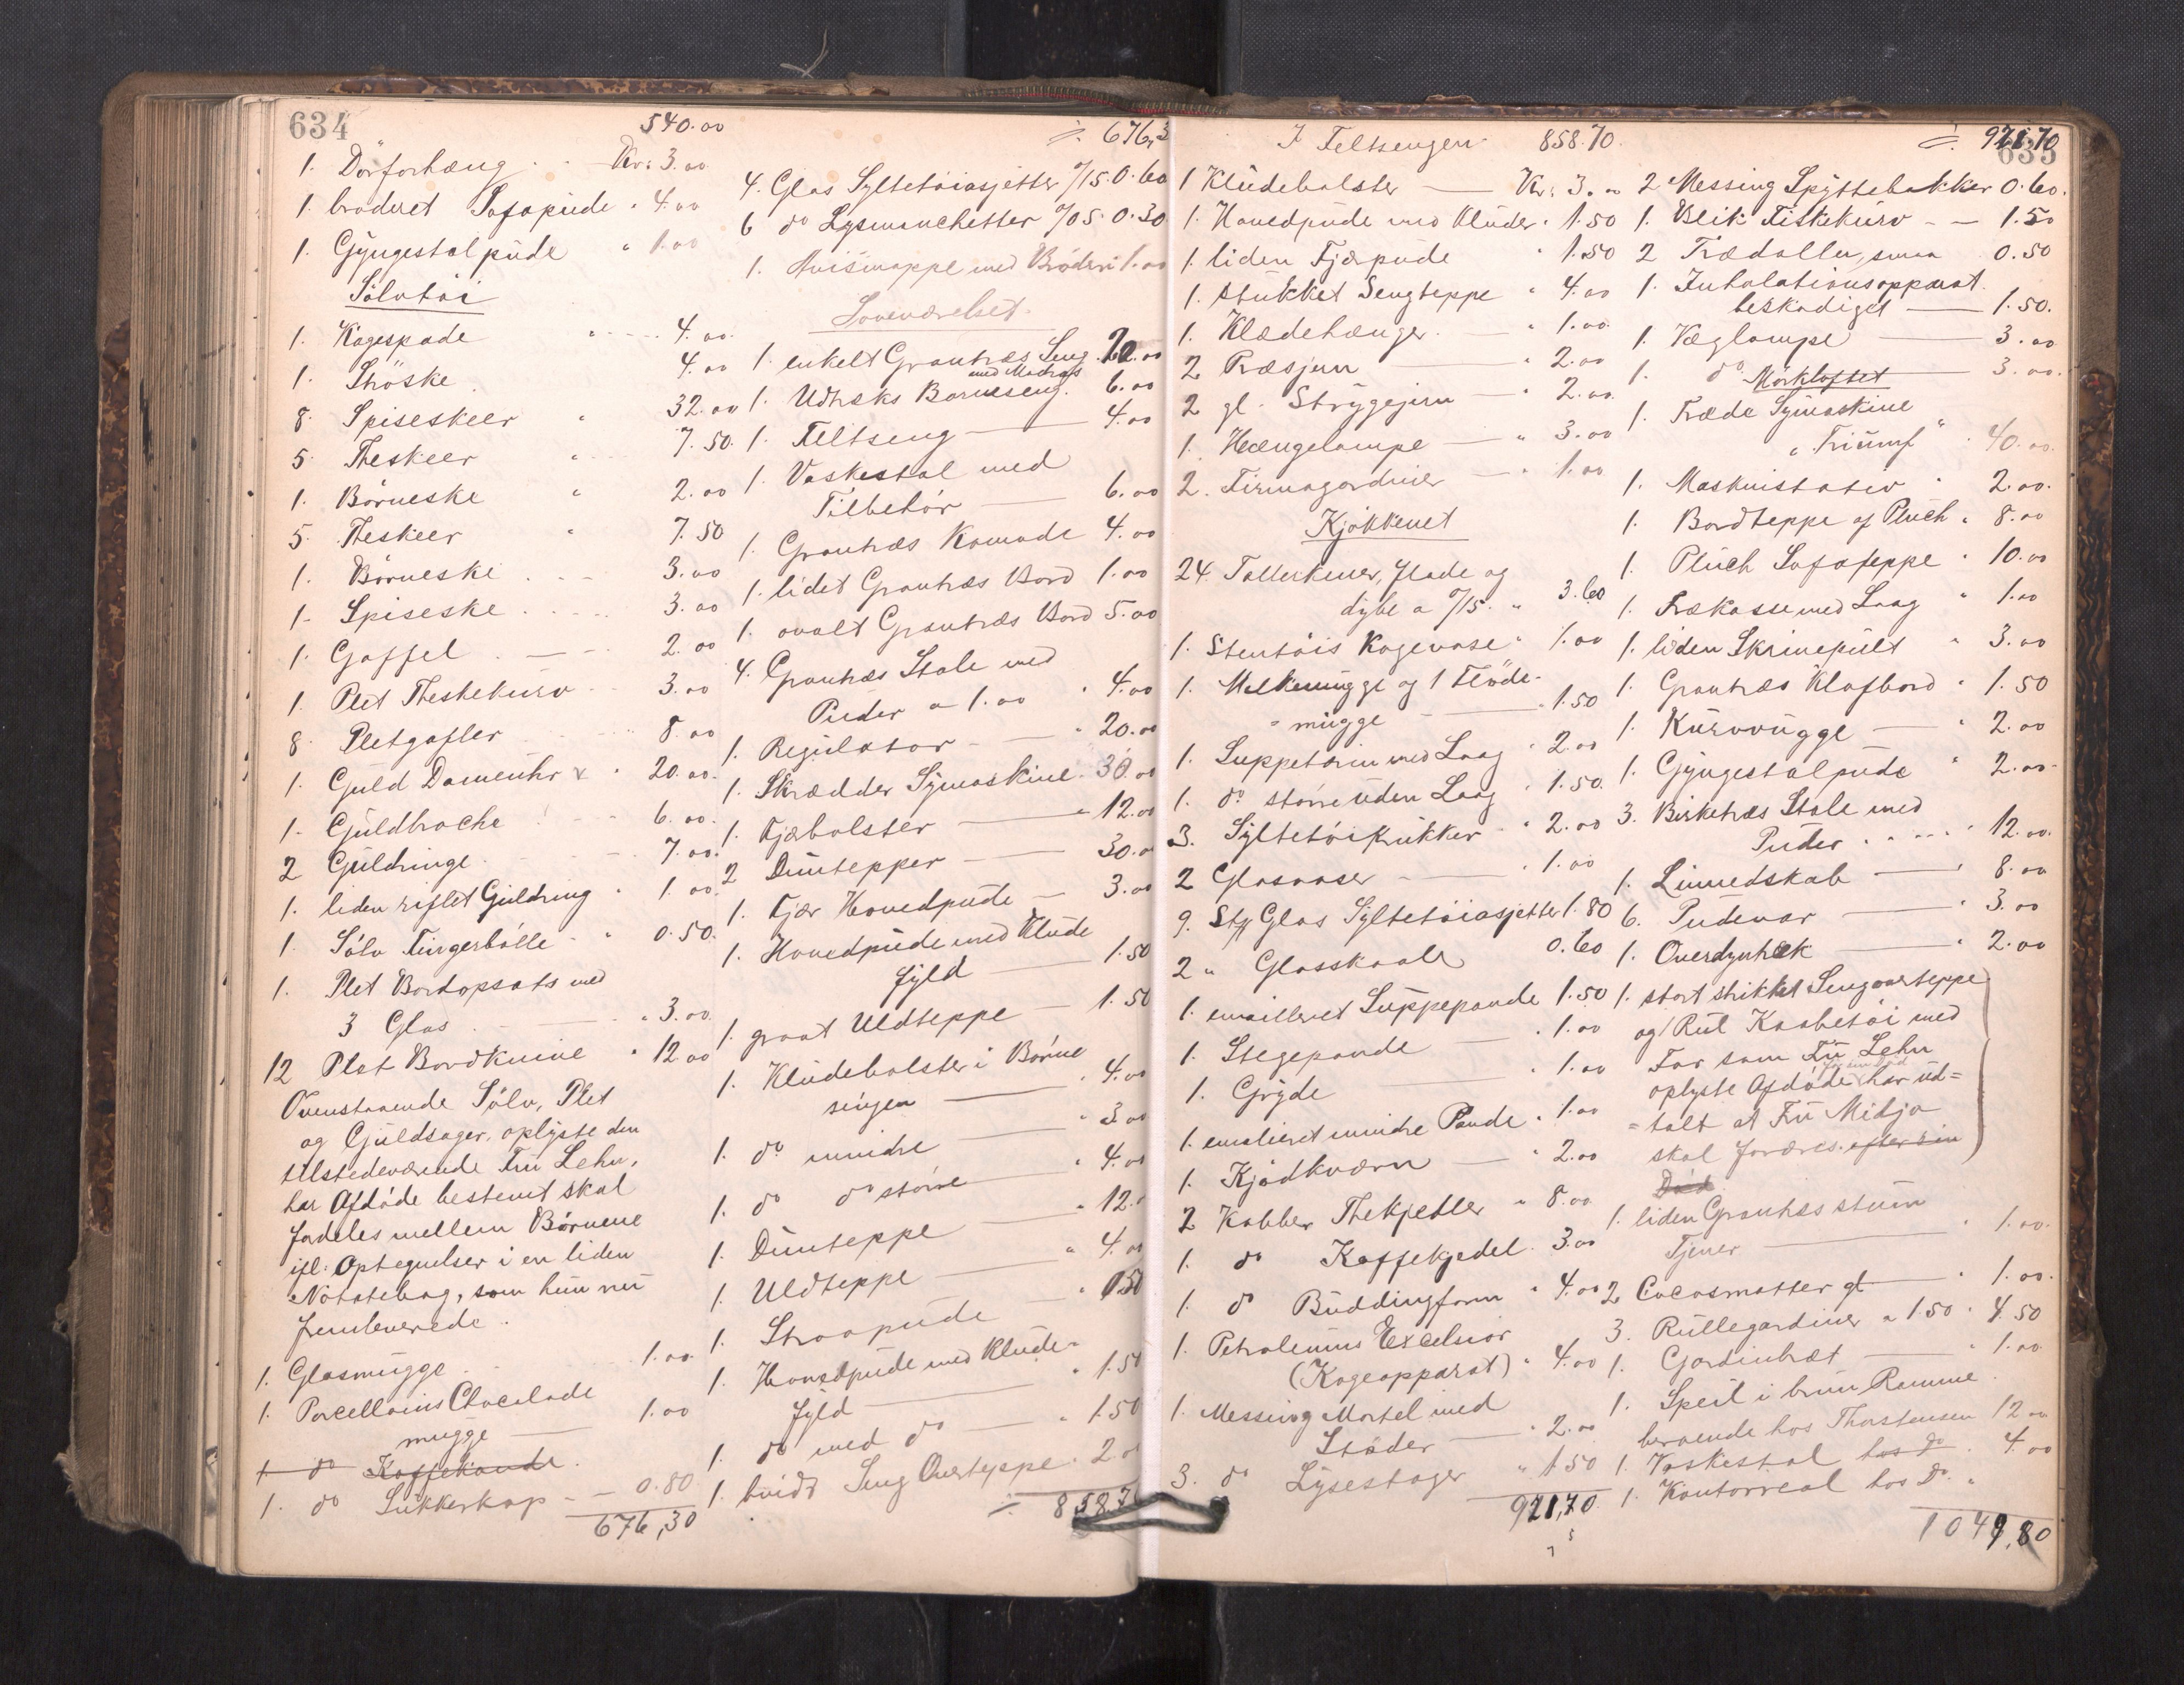 634
540.00
1. Dörforhæng Kr: 3.00
1. broderet Sofapude " 4.00
1. Gyngestolpude " 1.00
Sölvtöi
1. Kagespade " 4.00
1. Ströske 4.00
8. Spiseskeer " 32.00
5. Theskeer " 7.50.
1. Börneske " 2.00
5. Theskeer " 7.50
1. Börneske 3.00
1. Spiseske 3.00
1. Gaffel 2.00
1. Plet Theskekurv 3.00
8. Pletgafler 8.00
1. Guld Dameuhr x " 20.00.
1. Guldbroche 6.00.
2 Guldringe 7.00.
1. liden riflet Guldring " 1.00.
1. Sölv Fingerbölle " 0.50.
1. Plet Bordopsats med
3 Glas " 3.00.
12 Plet Bordknive " 12.00
Ovenstaaende Sölv, Plet
og Guldsager, oplyste den
tilstedeværende Fru Lehn,
har Afdöde bestemt skal
fordeles mellem Börnene
ifl: Optegnelser i en liden
Notatebog, som hun nu
fremleverede.
1. Glasmugge 1.00.
1. Porcellains Chocolade
mugge 1.00
1 do Kaffekande.
1. do Sukkerkop 0.80
676,30
÷ 676,3
4. Glas Syltetöiasjetter 0/15. 0.60
6 do Lysmanchetter 0/05. 0.30
1. Avismappe med Broderi 1.00
Soveværelset.
1. enkelt Grantræs Seng 20.00
med Madras
1. Udtræks Barneseng. 6.00
1. Feltseng 4.00
1. Vaskestol med
Tilbehör 6.00
1. Grantræs Komode 4.00
1. lidet Grantræs Bord 1.00
1. ovalt Grantræs Bord 5.00
4. Grantræs Stole med
Puder a 1.00 " 4.00
1. Regulator " 20.00
1. Skrædder Symaskine 30.00
1. Fjærbolster " 12.00
2 Duntepper 30.00
1. Fjær Hovedpude 3.00
1. Hovedpude med Klude
fyld 1.50
1. graat Uldteppe 1.50
1. Kludebolster i Börne
sengen " 4.00
1. do mindre " 3.00
1. do do större " 4.00
1. Dunteppe " 12.0
1. Uldteppe " 4.00
1. Straapude " 0.50
1. Hovedpude med Klude-
fyld " 1.50
1. do med do " 1.50
1. hvidt Seng Overteppe " 2.00
÷ 858.70
I Feltsengen 858.70.
1 Kludebolster Kr: 3.00
1. Hovedpude med Kluder " 1.50
1. liden Fjærpude " 1.50
1. stukket Sengteppe " 4.00
1. Klædehænger " 1.00.
2 Præsjern " 2.00
2 gl. Strygejern " 2.00.
1. Hængelampe " 3.00
2. Firmagardiner " 1.00
Kjökkenet
24. Tallerkener, flade og
dybe a 0/15. " 3.60
1. Stentöis Kagevase " 1.00
1. Melkemugge og 1 Flöde-
=mugge " 1.50
1. Suppeterin med Laag " 2.00
1. do större uden Laag " 1.50.
3. Syltetöikrukker " 2.00
2 Glasvaser " 1.00
9. Stk Glas Syltetöiasjetter 1.80
2 " Glasskaale 0.60
1. emailleret Suppepande 1.50
1. Stegepande " 1.00
1. Gryde " 1.00
1. emalieret mindre Pande " 1.00
1. Kjödkværn " 2.00
2 Kobber Thekjedler " 8.00
1. do Kaffekjedel 3.00
1. do Buddingform " 4.00
1. Petroleums Excelsior
(Kogeapparat) " 4.00
1. Messing Mortel med
Stöder " 2.00
3. do Lysestager " 1.50
921,70.
÷ 921.70
635
2 Messing Spyttebakker 0.60.
1. Blik Fiskekurv 1.50
2 Trædaller, smaa 0.50
1. Inhalationsapparat
beskadiget 1.50.
1. Væglampe 3.00
1. do 3.00.
Mörkloftet
1. Træde Symaskine
"Triumf" " 40.00.
1. Maskinstativ " 2.00.
1. Bordteppe af Plüch " 8.00
1. Plüch Sofateppe " 10.00
1. Trækasse med Laag " 1.00
1. liden Skrinepult " 3.00
1. Grantræs Klafbord " 1.50
1. Kurvvugge " 2.00
1. Gyngestolpude " 2.00
3. Birketræs Stole med
Puder " 12.00.
1. Linnedskab " 8.00
6. Pudevar " 3.00
1. Overdyntræk " 2.00
1. stort strikket Sengoverteppe
og 1 Rul Kaabetöi med
For som Fru Lehn
oplyste Afdöde har ud=
=talt at Fru Midjo
skal foræres. efter sin
Död
1. liden Grantræs stum
Tjener " 1.00.
2 Cocosmatter gl " 1.00.
3. Rullegardiner a 1.50 " 4.50
1. Gardinbræt " 1.00
1. Speil i brun Ramme
beroende hos Thorstensen 12.00
1. Vaskestol hos do. 4.00
1. Kontorreol hos do. "
1049,80